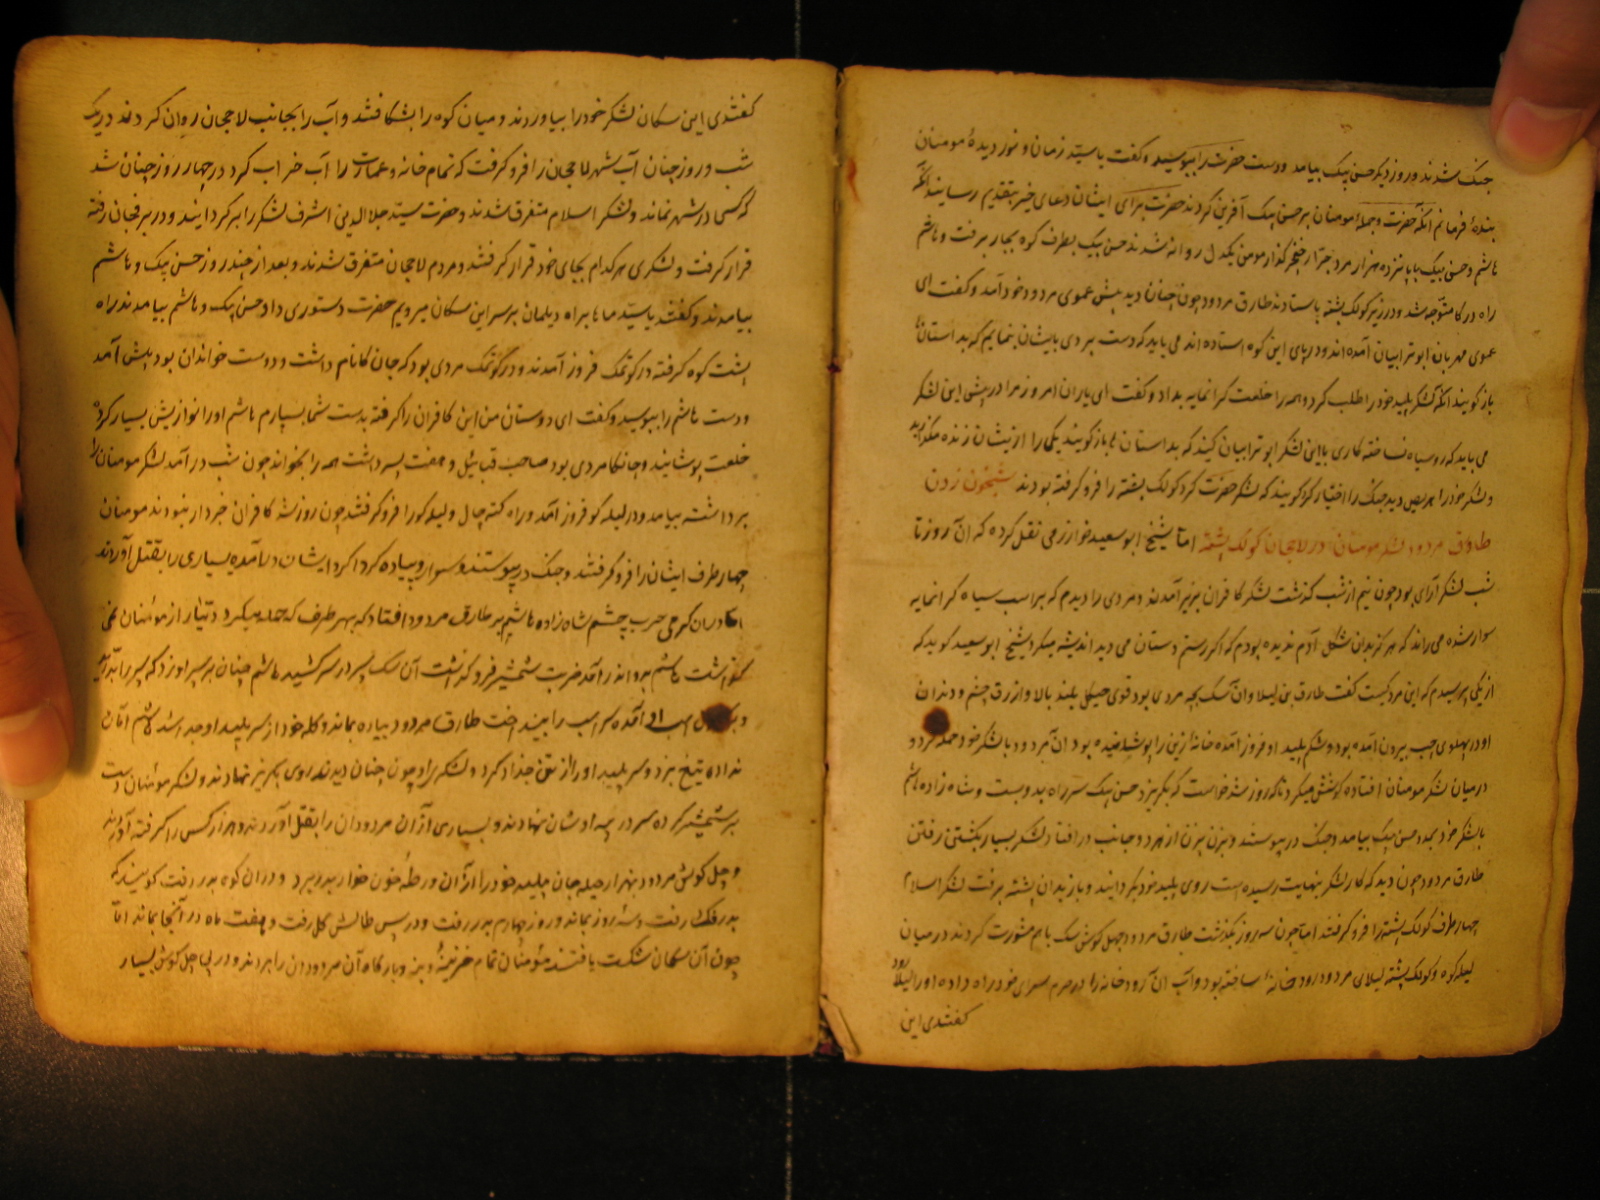 جنک شدند و روز دیکر حسن بیک بیامد و دست حضرت را ببوسید و کفت یا سید زمان و نور دیدهٔ مومنان
بنده فرمانم انکه حضرت و جمله مومنان بر حسن بیک آفرین کردند حضرت برای ایشان دعای خیر بتقدیم رسانید انکه
هاشم و حسن بیک با پانزده هزار مرد جرّار خنجر کذار مومن یکدل روانه شدند حسن بیک بطرف کوه بجار برفت و هاشم
راه در کا متوجه شد و در زیر کولک پشته باستادند طارق مردود چون چنان دید پیش عموی مردود خود آمد و کفت ای
عموی مهربان ابوترابیان آمده اند و در پای این کوه استاده اند می باید که دست بردی بایشان بنمایم که بداستانها
باز کویند انکه لشکر پلید خود را طلب کرد و همه را خلعت کرانمایه بداد و کفت ای یاران امروز مرا در پیش این لشکر
می باید که روسیاه نساخته کاری با این لشکر ابوترابیان کنید که بداستان ها باز کویند یکی را از ایشان زنده مکذارید
و لشکر خود را حریص دید جنک را اختیار کرد کویند که لشکر حضرت کرد کولک پشته را فرو کرفته بودند شبخون زدن
طارق مردود لشکر مومنان در لاهجان کولک پشته امّا شیخ ابوسعید خوارزمی نقل کرده که آن روز تا
شب لشکر آرای بود چون نیم از شب کذشت لشکر کافران بزیر آمدند و مردی را دیدم که بر اسب سیاه کرانمایه
سوار شده می راند که هرکز بدان شکل آدم ندیده بودم که اکر رستم دستان می دید اندیشه میکرد شیخ ابوسعید کوید که
از یکی پرسیدم که این مرد کیست کفت طارق بن لیلا و آن سک بچه مردی بود قوی هیکل بلند بالا و ازرق چشم و دندان
او در پهلوی چپ بیرون آمده بود و شکم پلید او فروز آمده خانهٔ زین را پوشانیده بود آن مردود با لشکر خود حمله کرد و
در میان لشکر مومنان افتاده کوشش میکرد تا که روز شد خواست که بکریزد حسن بیک سر راه بدو بست و شاه زاده هاشم
با لشکر خود بمدد حسن بیک بیامد و جنک در پیوستند و بزن بزن از هر دو جانب در افتاد لشکر بسیار بکشتن رفتن
طارق مردود چون دید که کار لشکر بنهایت رسیده است روی پلید خود بکردانید و باز بدان پشته برفت لشکر اسلام
چهار طرف کولک پشته را فرو کرفتند امّا چون سه روز بکذشت طارق مردود چهل کوش سک با هم مشورت کردند در میان
لیله کوه و کولک پشته لیلای مردود رود خانهٔ ساخته بود و آب آن رود خانه را در حرم سرای خود راه داده او را لیلا رود
کفتندی این
کفتندی این سکان لشکر خود را بیاوردند و میان کوه را بشکافتند و آب را بجانب لاهجان روان کردند در یک
شب و روز چنان آب شهر لاهجان را فرو کرفت که تمام خانه و عمارت را آب خراب کرد در چهار روز چنان شد
که کسی در شهر نماند و لشکر اسلام متفرق شدند و حضرت سید جلال الدین اشرف لشکر را بر کردانید و در برفجان رفته
قرار کرفت و لشکری هر کدام بجای خود قرار کرفتند و مردم لاهجان متفرق شدند و بعد از چند روز حسن بیک و هاشم
بیامدند و کفتند یا سید ما براه دیلمان بر سر این سکان میرویم حضرت دستوری داد حسن بیک و هاشم بیامدند راه
پشت کوه کرفته در کوتمک فروز آمدند و در کوتمک مردی بود که جان کا نام داشت و دوست خواندان بود پیش آمد
و دست هاشم را ببوسید و کفت ای دوستان من این کافران را کرفته بدست شما بسپارم هاشم او را نوازش بسیار کرده
خلعت پوشانید و جانکا مردی بود صاحب قبائل و هفت پسر داشت همه را بخواند چون شب در آمد لشکر مومنان را
بر داشته بیامد و در لیله کو فروز آمد و راه کته چال و لیله کو را فرو کرفتند چون روز شد کافران خبردار نبودند مومنان
چهار طرف ایشان را فرو کرفتند و جنک در پیوستند و سوار و پیاده کرداکرد ایشان در آمده بسیاری را بقتل آوردند
در ان کرمی حرب چشم شاه زاده هاشم بر طارق مردود افتاد که بهر طرف که حمله میکرد دیّار از مومنان نمی
کذاشت هاشم بر او اندر آمد ضربت شمشیر فرو کذاشت آن سک سپر در سر کشید هاشم چنان بر سپر او زد که سپر را
آمده سر اسب را بینداخت طارق مردود پیاده بماند و کله خود از سر پلید او جدا شد هاشم امان
نداده تیغ بزد و سر پلید او را از تن جدا کرد و لشکر او چون چنان دیدند روی بکریز نهادند و لشکر مومنان دست
بر شمشیر کرده سر در پی ایشان نهادند و بسیاری از آن مردودان را بقتل آوردند و هزار کس را کرفته آوردند
و چل کوش مردود بهزار حیله جان پلید خود را از آن ورطه خون خوار بدر برد و در ان کوه بدر رفت کویند که
رفت و سه روز بماند و روز چهارم بدر رفت و در پس طالش کل رفت و هفت ماه در آنجا بماند امّا
چون آن سکان شکست یافتند مومنان تمام خزینه و بنه و بارکاه آن مردودان را بردند و در پی چل کوش بسیار